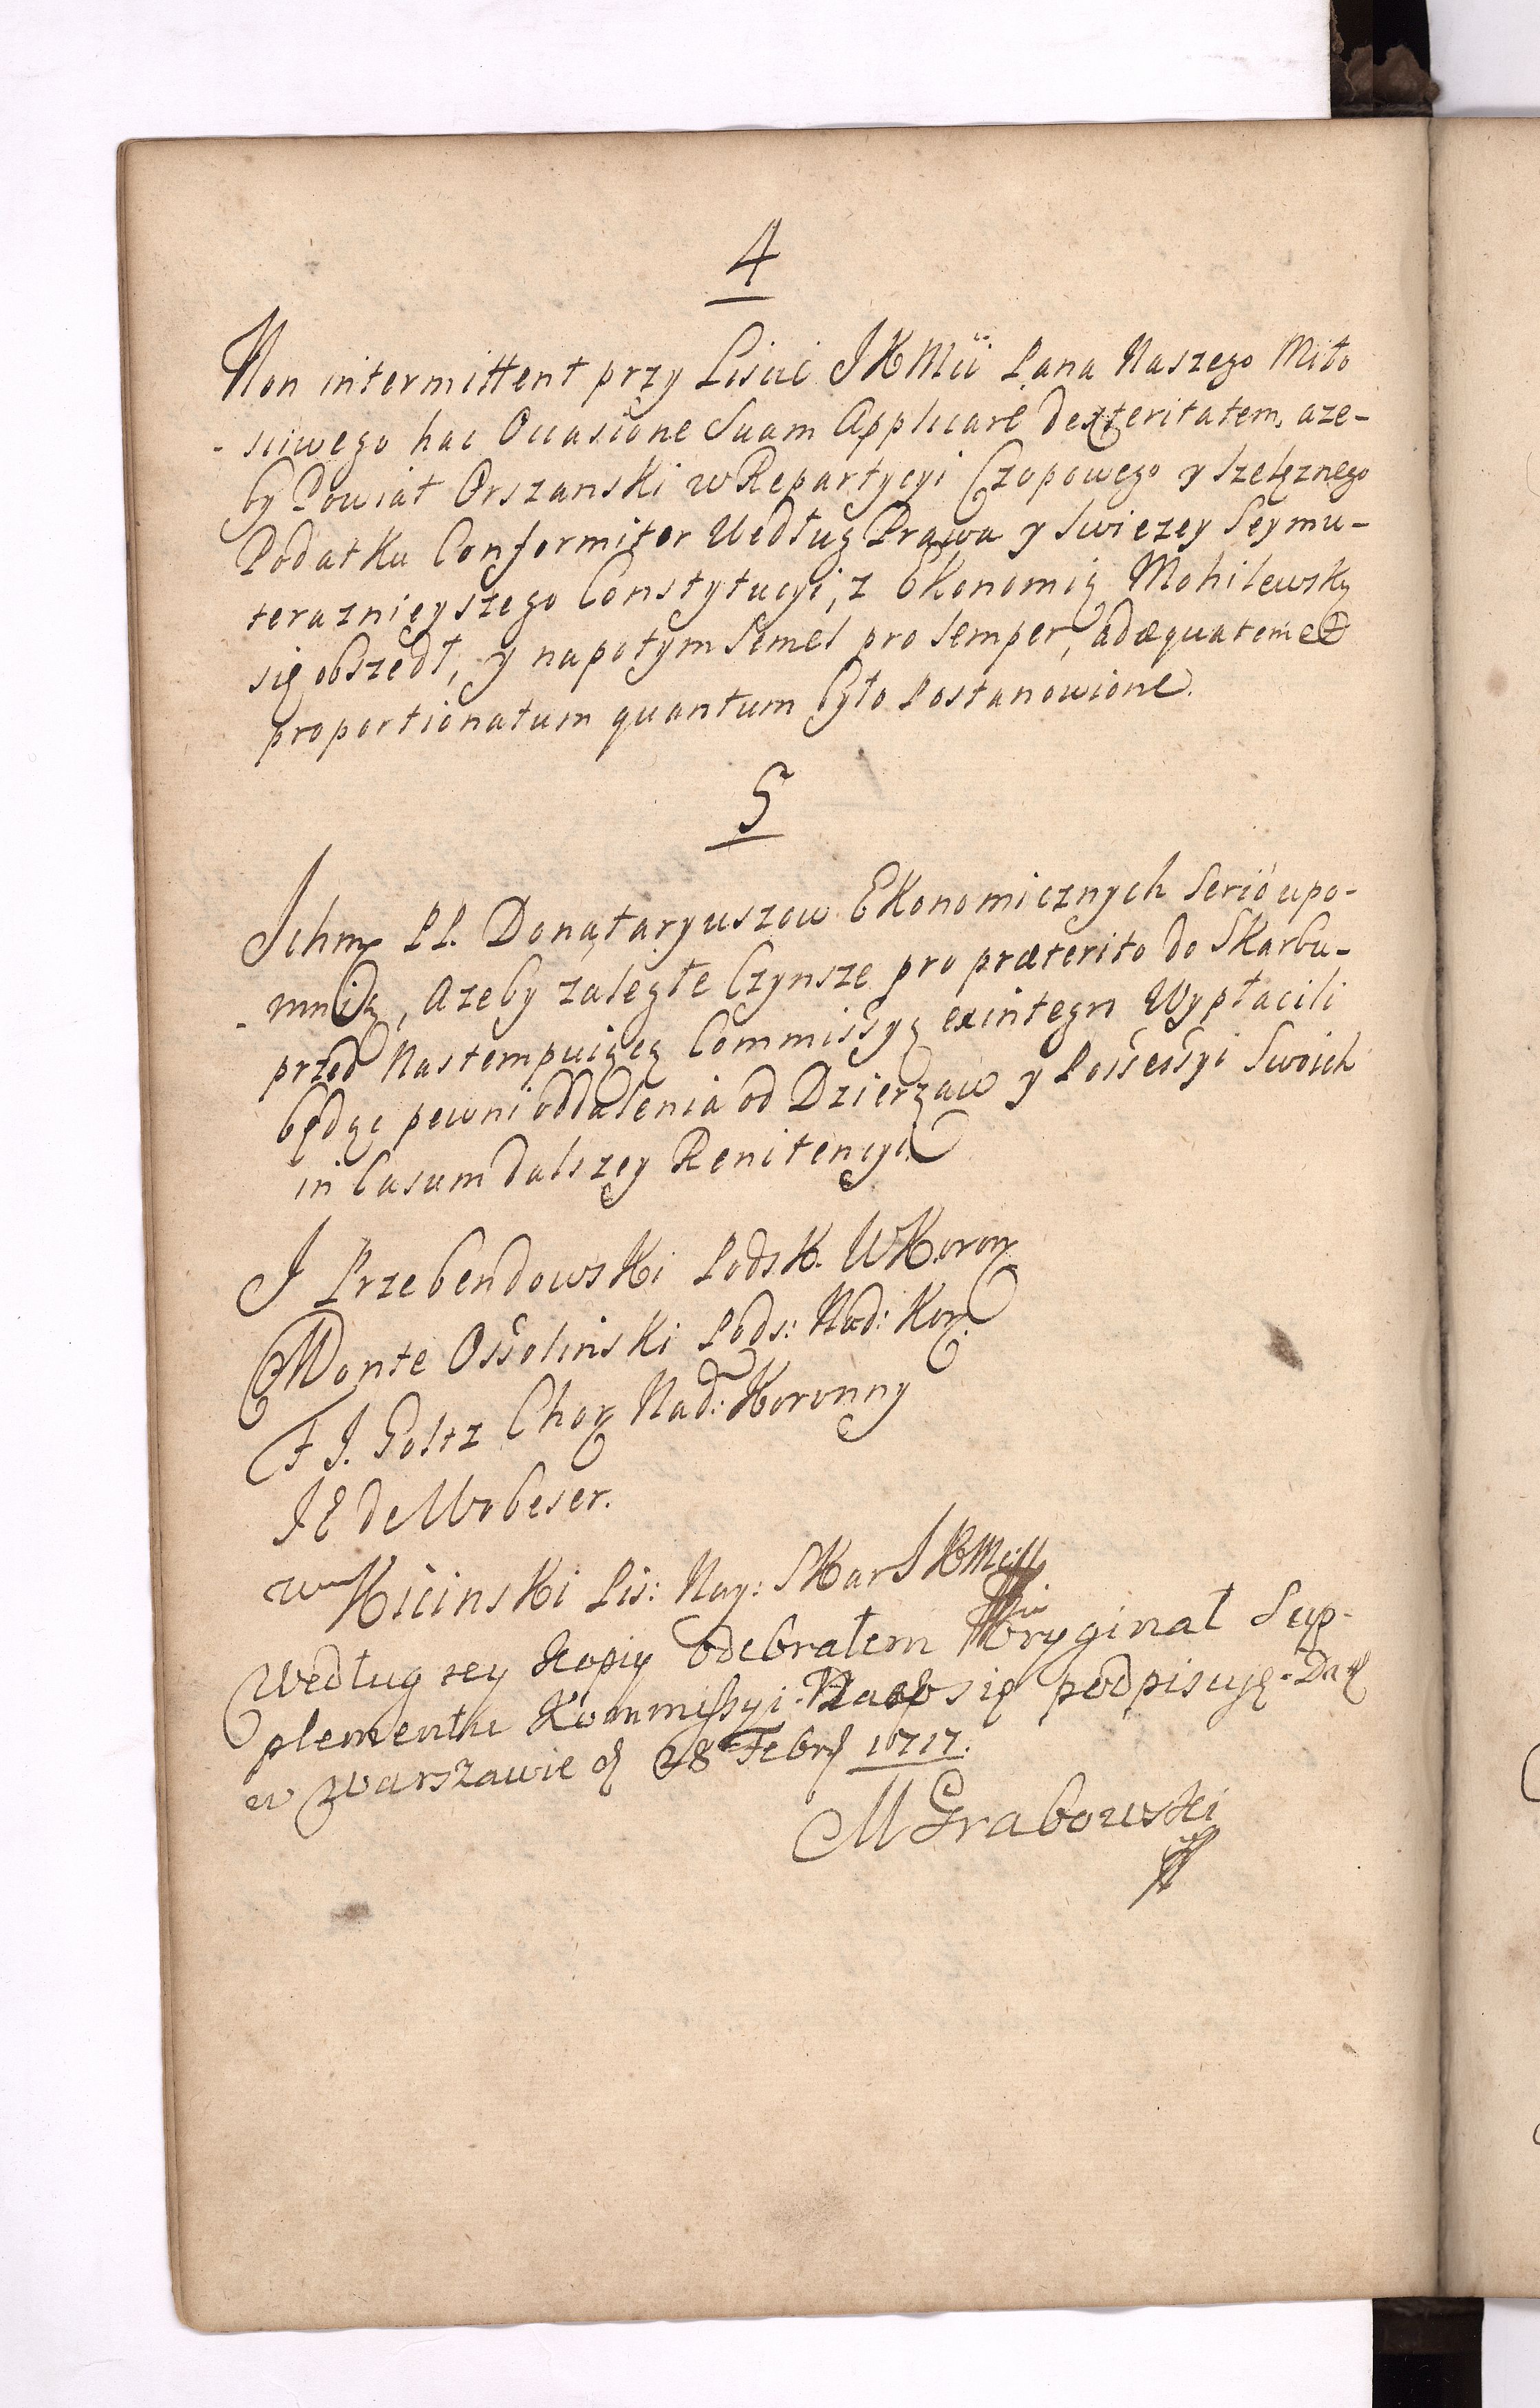 4
Non intermittent przy Liscie JKMci Pana Naszego Miło
- sciwego hac Occasione Suam Applicare dexteritatem, aze-
by Powiat Orszanski w Repartycyi Czopowego y Szelęznego
Podatku Conformiter Według Prawa y Swiezey Seymu-
teraznieyszego Constytucyi, z Ekonomią Mohilewską
się obszedł, y napotym Semel pro Semper, adæquatum et
proportionatum quantum było Postanowione.
5
Ichm PP. Donataryuszow Ekonomicznych Serio upo-
- mnią, Azeby zaległe Czynsze pro præterito do Skarbu-
przed Nastempuiącą Commissyą ex integro Wypłacili
będąc pewni oddalenia od Dzierzaw y Possessyi Swoich
in Casum dalszey Renitencyi.
J Przebendowski Pods.K. WKoron
Monte Ossolinski Pods: Nad: Kor.
F J. Goltz Chor Nad: Koronny
J E de Wobeser.
Kicinski Pis: Nay: Skar JKMci
Według tey kopiy odebrałem Oryginał Sup-
plementu Kommissyi. Na co się podpisuję. Dat
w Warszawie d 28 Febr 1717.
M Grabowski